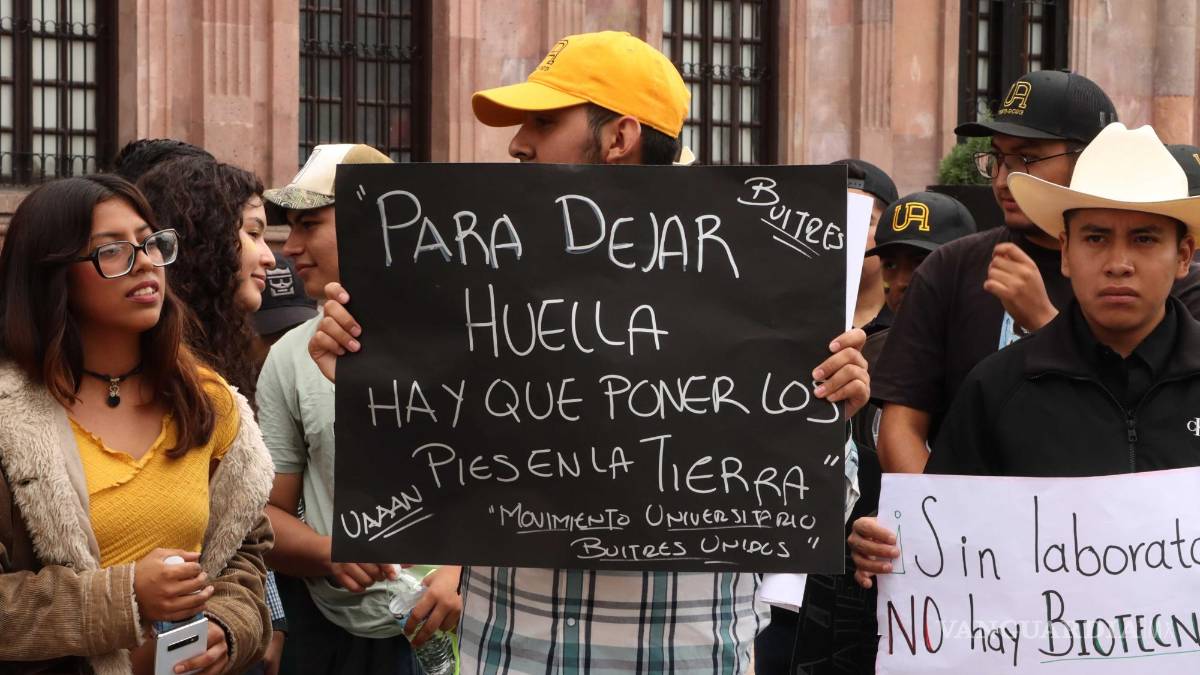 UA
UA
UA
"PARA DEJAR
BUITRES
HUELLA
HAY QUE PONER LOS
PIES EN LA TIERRA"
UAAAN
"MOVIMIENTO UNIVERSITARIO
BUITRES UNIDOS"
¡Sin laborato
NO hay BIOTECN
VANGUARDIA